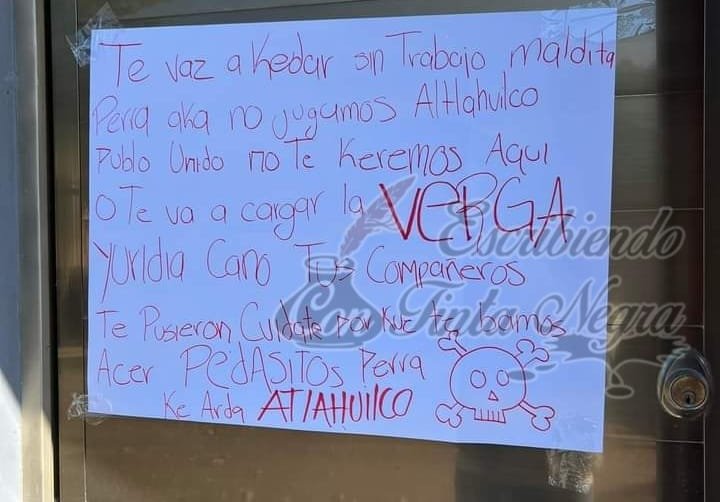 Te vaz a Kedar sin Trabajo maldita
Perra aka no jugamos Altlahuilco
Publo Unido no Te Keremos Aqui
O Te va a cargar la VERGA
Yuridia Cano Tus Compañeros
Te Pusieron Cuidate por Ke te bamos
Acer PEDASITOS Perra
Ke Arda ATlAHUilCO
Escribiendo
Con Tinta Negra